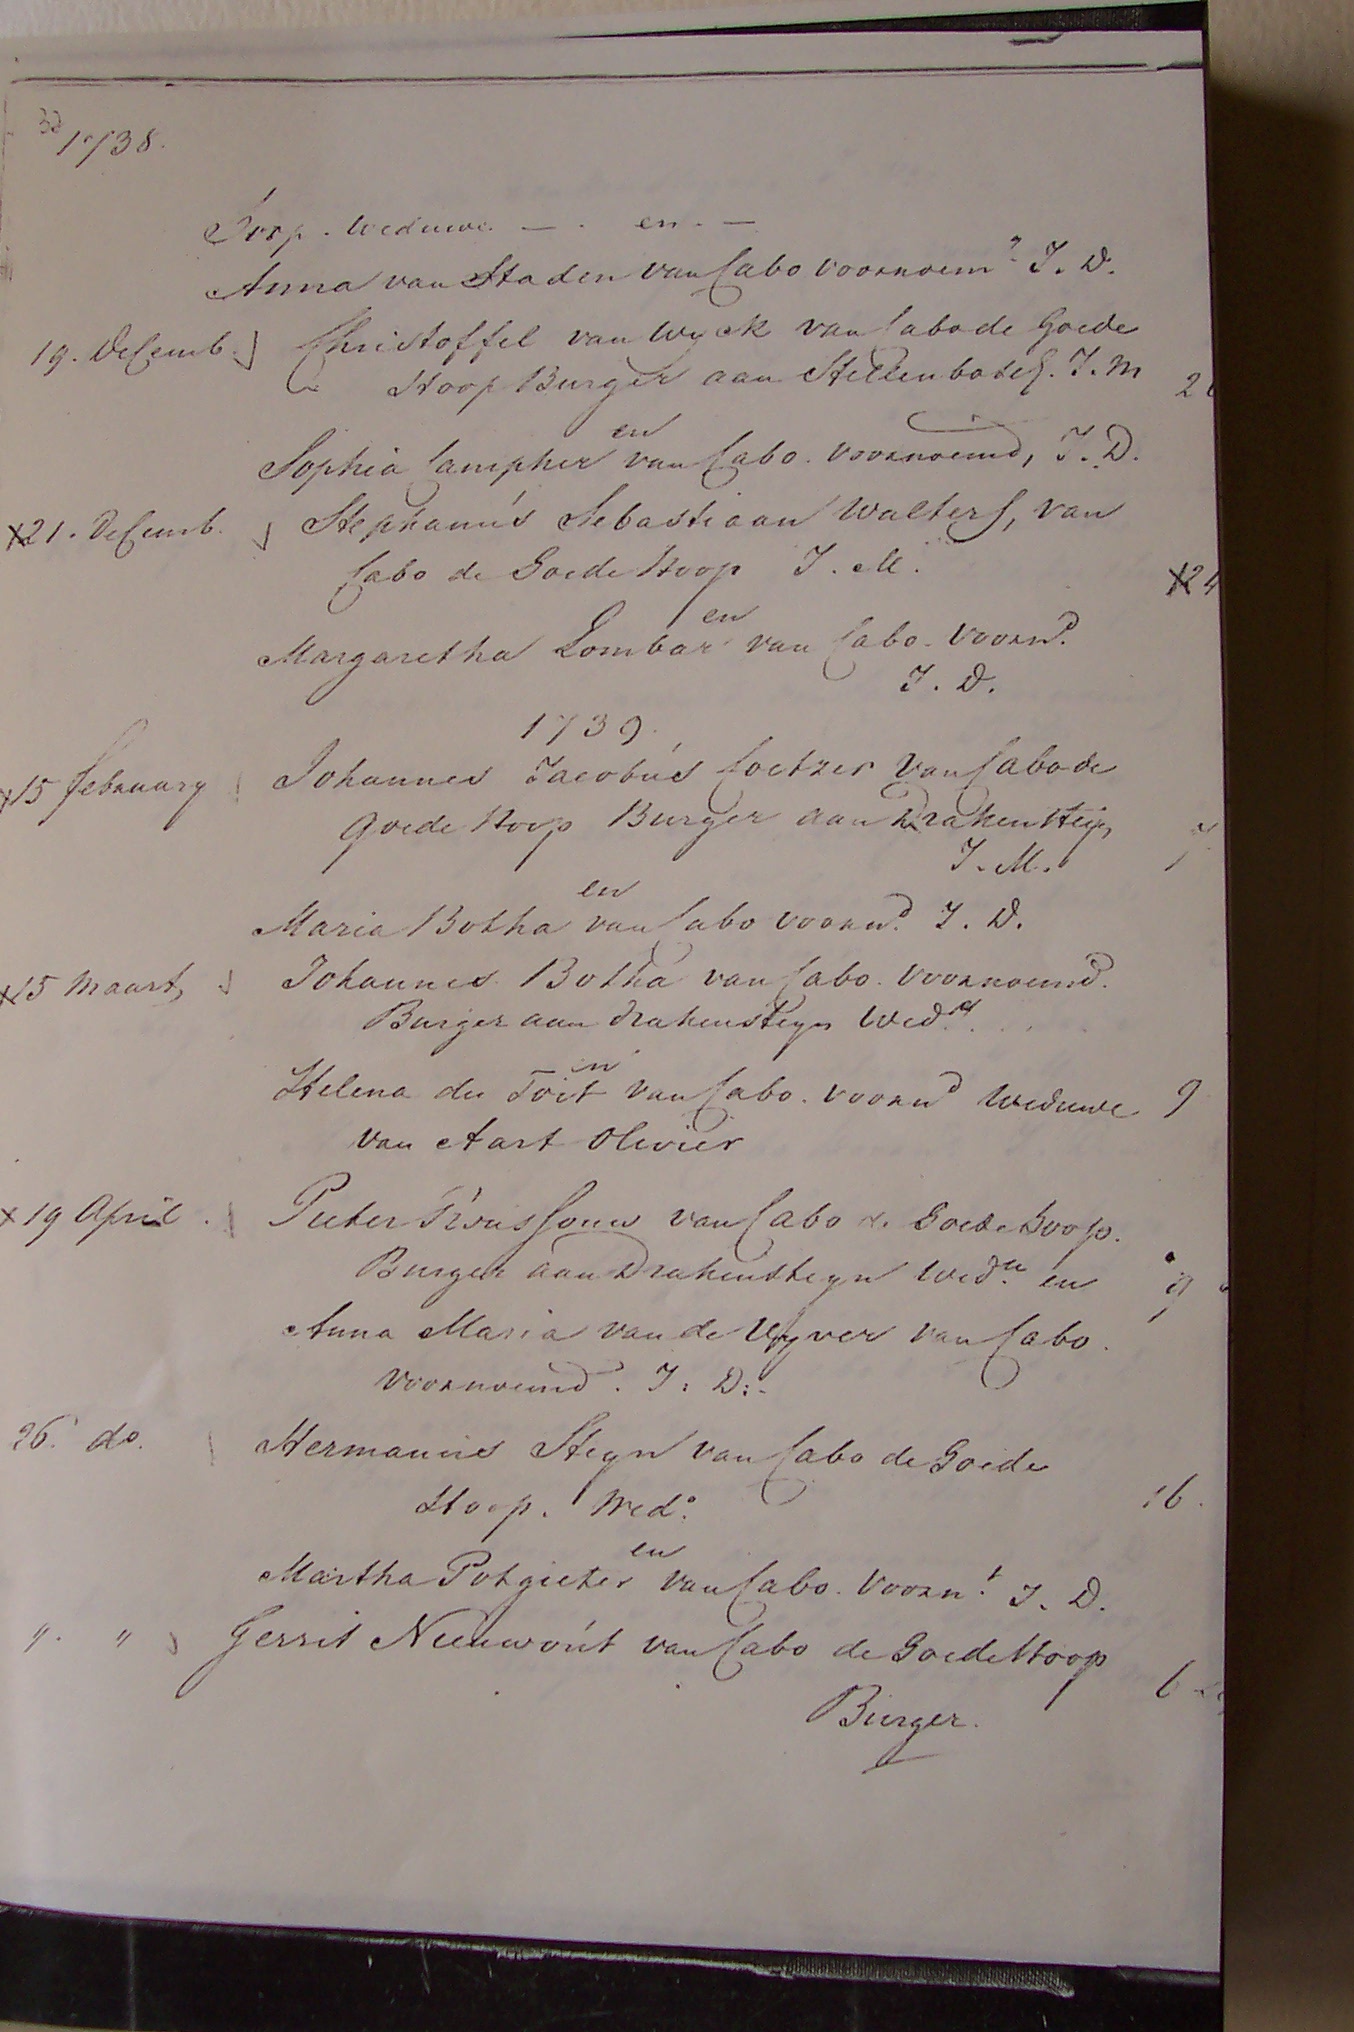 32
1738.
Hoop. Weduwe. — . en . —
Anna van Staden van Cabo voornoemd J. D.
19. Decemb. Christoffel van Wyck van Cabo de Goede
Hoop Burger aan Stellenbosch. J. M
en
Sophia Campher van Cabo. voornoemd, J. D.
X21. Decemb. Stephanus Sebastiaan Walters, van
Cabo de Goede Hoop J. M. X24
en
Margaretha Lombar van Cabo. Voorn.d
J. D.
1739.
X15 february Johannes Jacobus Coetzer van Cabo de
goede Hoop Burger aan Drakensteyn
J. M.
en
Maria Botha van Cabo voorn.d J. D.
X15 Maart, Johannes Botha van Cabo. Voornoemd.
Burger aan drakensteyn Wed.r
en
Helena du Toit van Cabo. voorn.d Weduwe 9
van Aart Olivier
X 19 April. Pieter van Cabo de Goede hoop.
Burger aan Drakensteyn Wed.r en 9
Anna Maria van de Vyver van Cabo.
voornoemd. J: D:-
26. do. Hermanus Steyn van Cabo de Goede
Hoop. Wed.r 16.
en
Martha Potgieter van Cabo. Voorn.d J. D.
" . " Gerrit Nieuwout van Cabo de Goede Hoop
Burger. 6